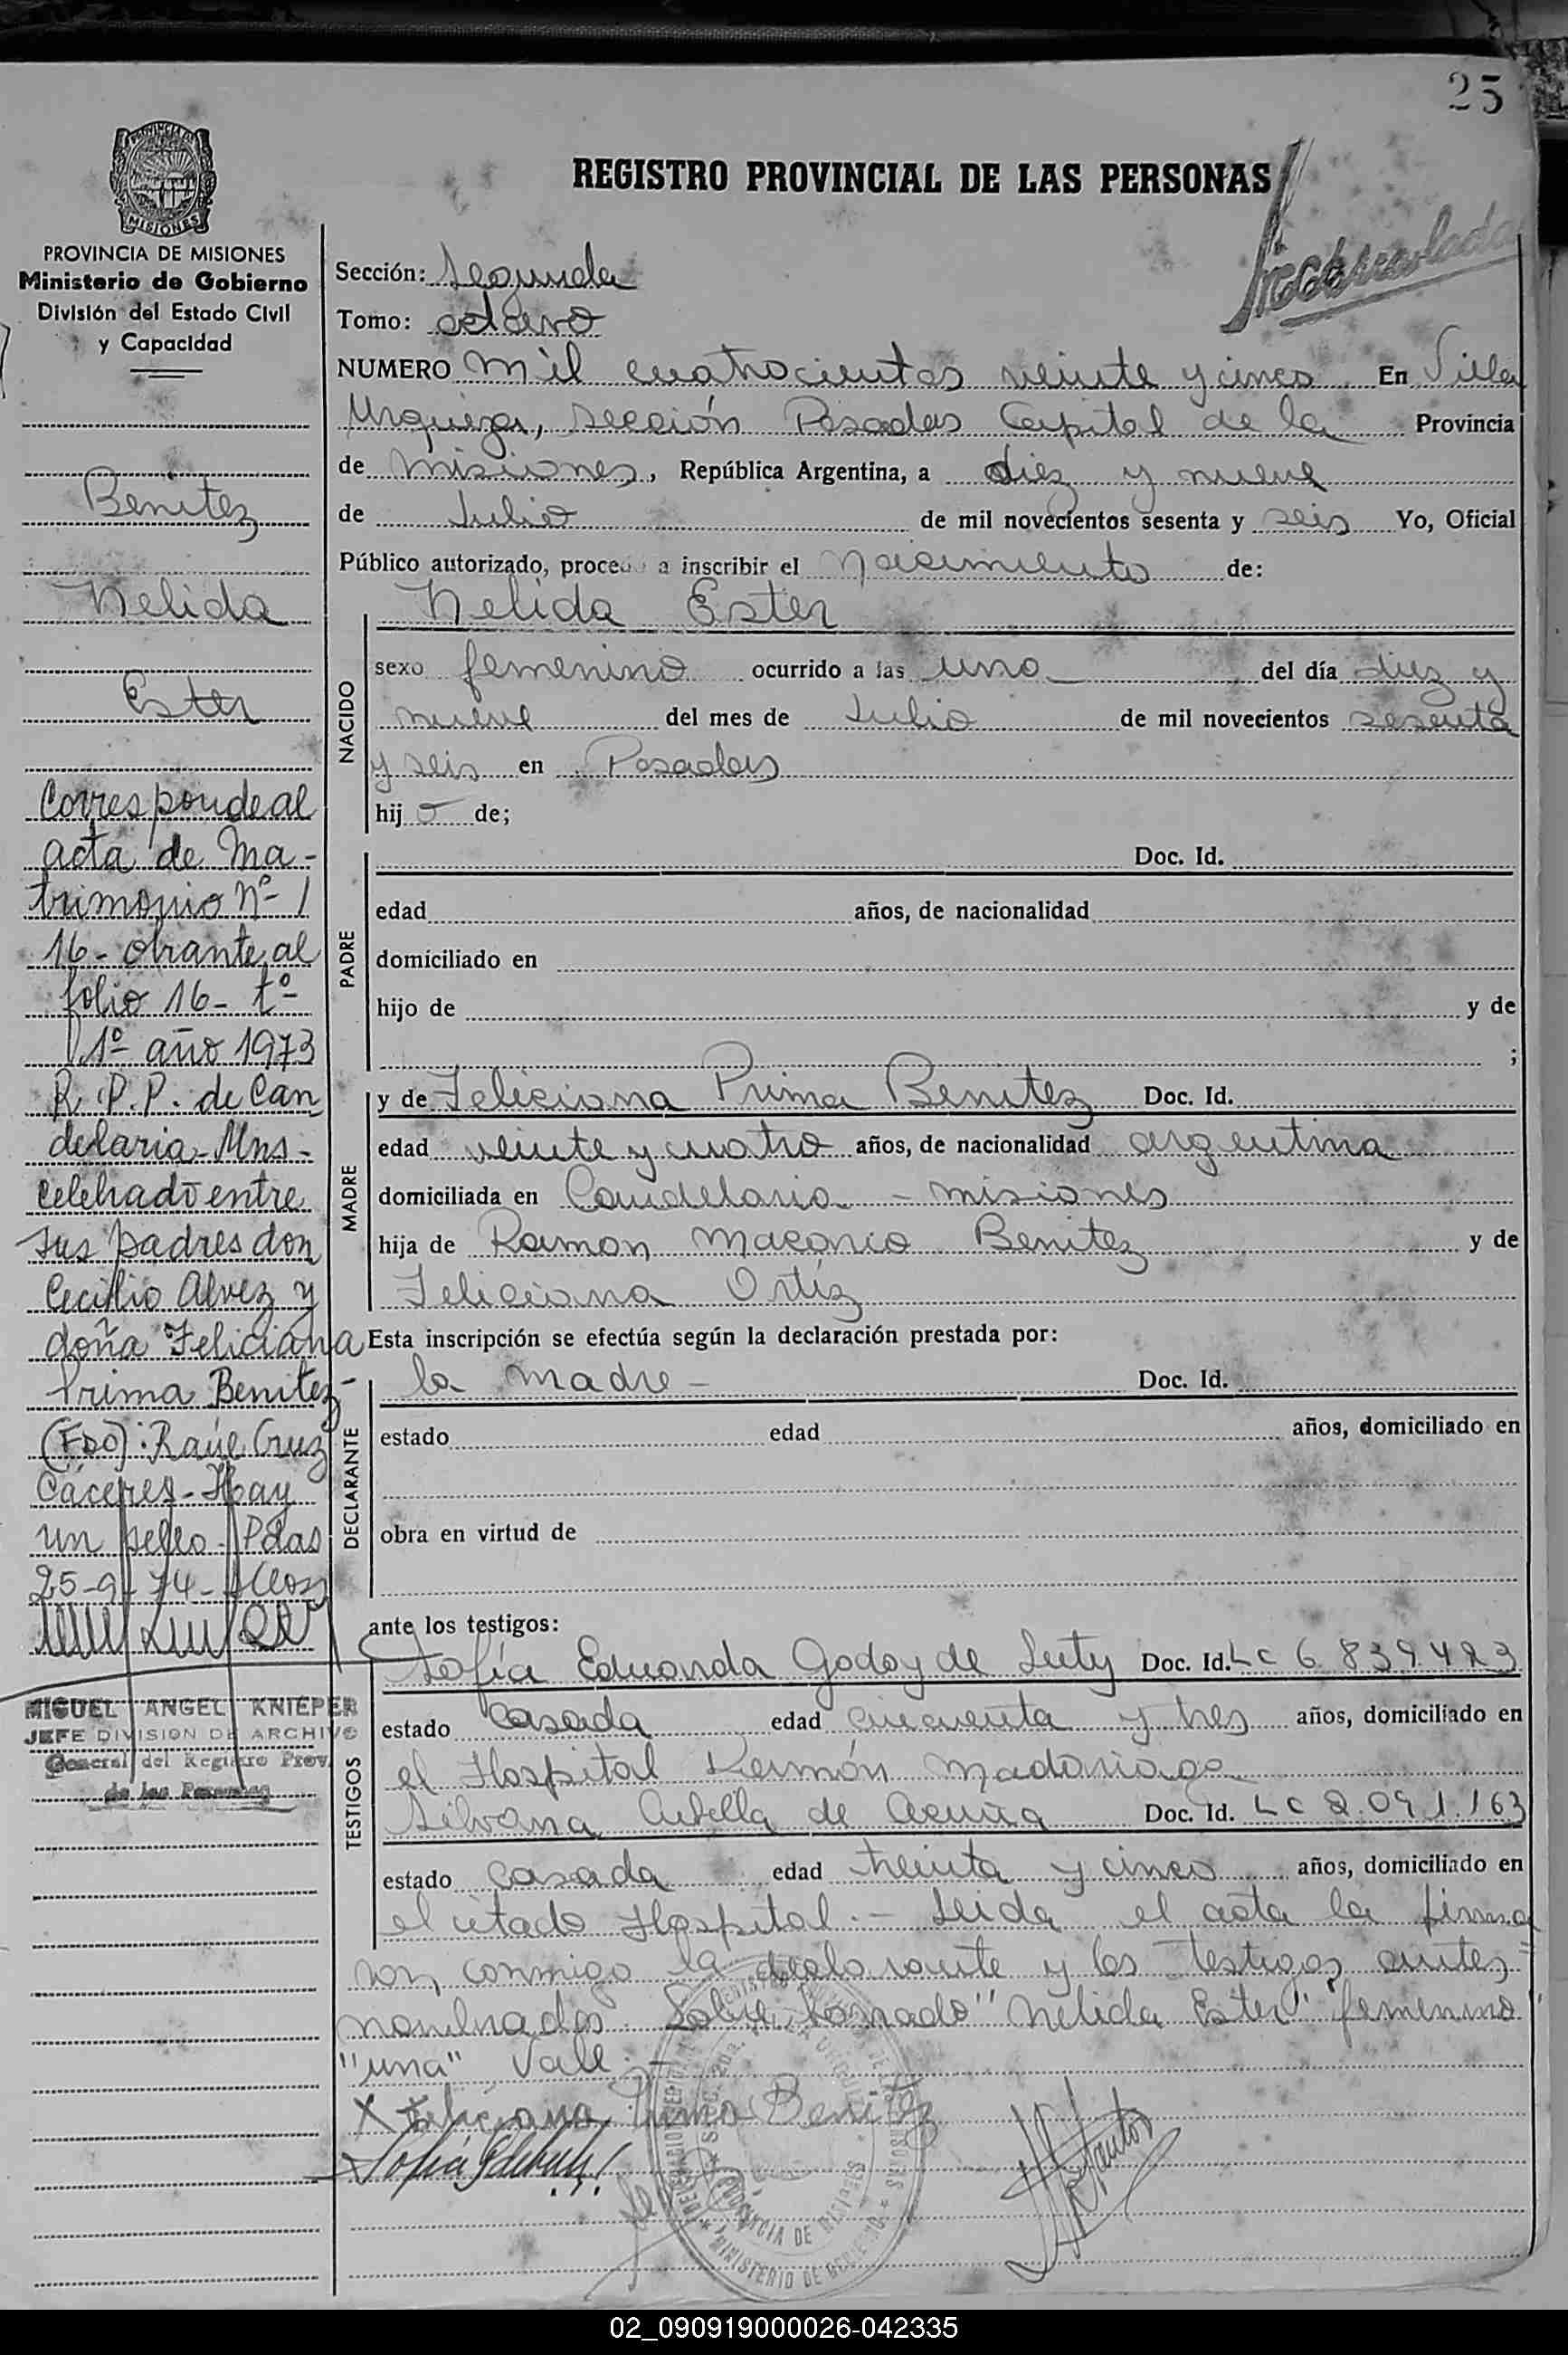 25
REGISTRO PROVINCIAL DE LAS PERSONAS
MISIONES
PROVINCIA DE MISIONES
Ministerio de Gobierno
División del Estado Civil
y Capacidad
Benitez
Nelida
Ester
Corresponde al
acta de Ma-
trimonio Nº 1
16- obrante al
folio 16- tº
1º año 1973
R.P.P. de Can
delaria-Mns-
celebrado entre
sus padres don
Cecilio Alvez y
doña Feliciana
Prima Benitez-
(FDO): Raúl Cruz
Cáceres-Hay
un sello-Pdas
25-9-74-
MIGUEL ANGEL KNIEPER
JEFE DIVISION DE ARCHIVO
General del Registro Prov.
de las Personas
Sección: Segunda
Tomo: octavo
NUMERO mil cuatrocientos veinte y cinco En Villa
Urquiza, sección Posadas Capital de la Provincia
de misiones, República Argentina, a diez y nueve
de Julio de mil novecientos sesenta y seis Yo, Oficial
Público autorizado, procedo a inscribir el nacimiento de:
Nelida Ester
NACIDO
sexo femenino ocurrido a las una del día diez y
nueve del mes de Julio de mil novecientos sesenta
y seis en Posadas
hij o de;
PADRE
Doc. Id.
edad años, de nacionalidad
domiciliado en
hijo de y de
;
MADRE
y de Feliciana Prima Benitez Doc. Id.
edad veinte y cuatro años, de nacionalidad argentina
domiciliada en Candelaria - misiones
hija de Ramon Macario Benitez y de
Feliciana Ortíz
Esta inscripción se efectúa según la declaración prestada por:
DECLARANTE
la madre- Doc. Id.
estado edad años, domiciliado en
obra en virtud de
ante los testigos:
TESTIGOS
Sofía Eduarda Godoy de Doc. Id. LC 6.839.423
estado casada edad cincuenta y tres años, domiciliado en
el Hospital Ramón Madariaga
Silvana de Acuña Doc. Id. LC 2.091.163
estado casada edad treinta y cinco años, domiciliado en
el citado Hospital.- Leida el acta la firma
ron conmigo la declarante y los testigos antes
nombrados. Sobre borrado "Nelida Ester" "femenino"
"una" Vale.-
X Feliciana Prima Benitez
PROVINCIA DE MISIONES
MINISTERIO DE GOBIERNO
02_090919000026-042335